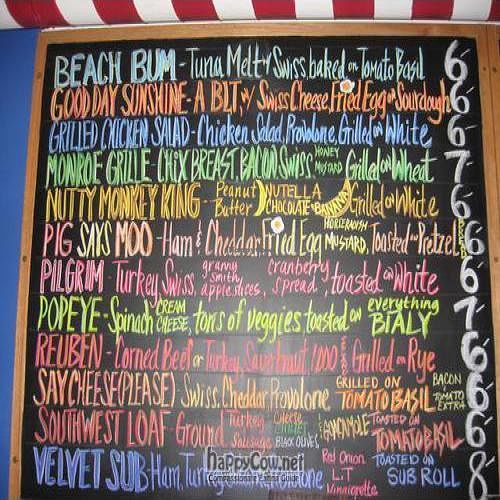 BEACH BUM - Tuna Melt w/ Swiss baked on Tomato Basil 6
GOOD DAY SUNSHINE - A BLT w/ Swiss Cheese, Fried Egg on Sourdough 6
GRILLED CHICKEN SALAD - Chicken Salad, Provolone, Grilled on White 6
MONROE GRILLE - CHIX BREAST, BACON, Swiss HONEY MUSTARD Grilled on Wheat 7
NUTTY MONKEY KING - Peanut Butter NUTELLA CHOCOLATE BANANAS Grilled on White 6
PIG SAYS MOO - Ham & Cheddar, Fried Egg HORSERADISH MUSTARD, Toasted on Pretzel 6
PILGRIM - Turkey, Swiss, granny smith apple slices, cranberry spread, toasted on White 6
POPEYE - Spinach CREAM CHEESE, tons of veggies toasted on everything BIALY 7
REUBEN - Corned Beef or Turkey, Sauerkraut, 1,000 Grilled on Rye 6
SAY CHEESE (PLEASE) Swiss, Cheddar, Provolone GRILLED ON TOMATO BASIL BACON TOMATO EXTRA 6
SOUTHWEST LOAF - Ground Turkey Sausage Cheese BLACK OLIVES TOASTED ON TOMATO BASIL 6
VELVET SUB - Ham, Turkey Red Onion L.T Vinaigrette TOASTED ON SUB ROLL 8
happyCow.net
Compassionate Eating Guide